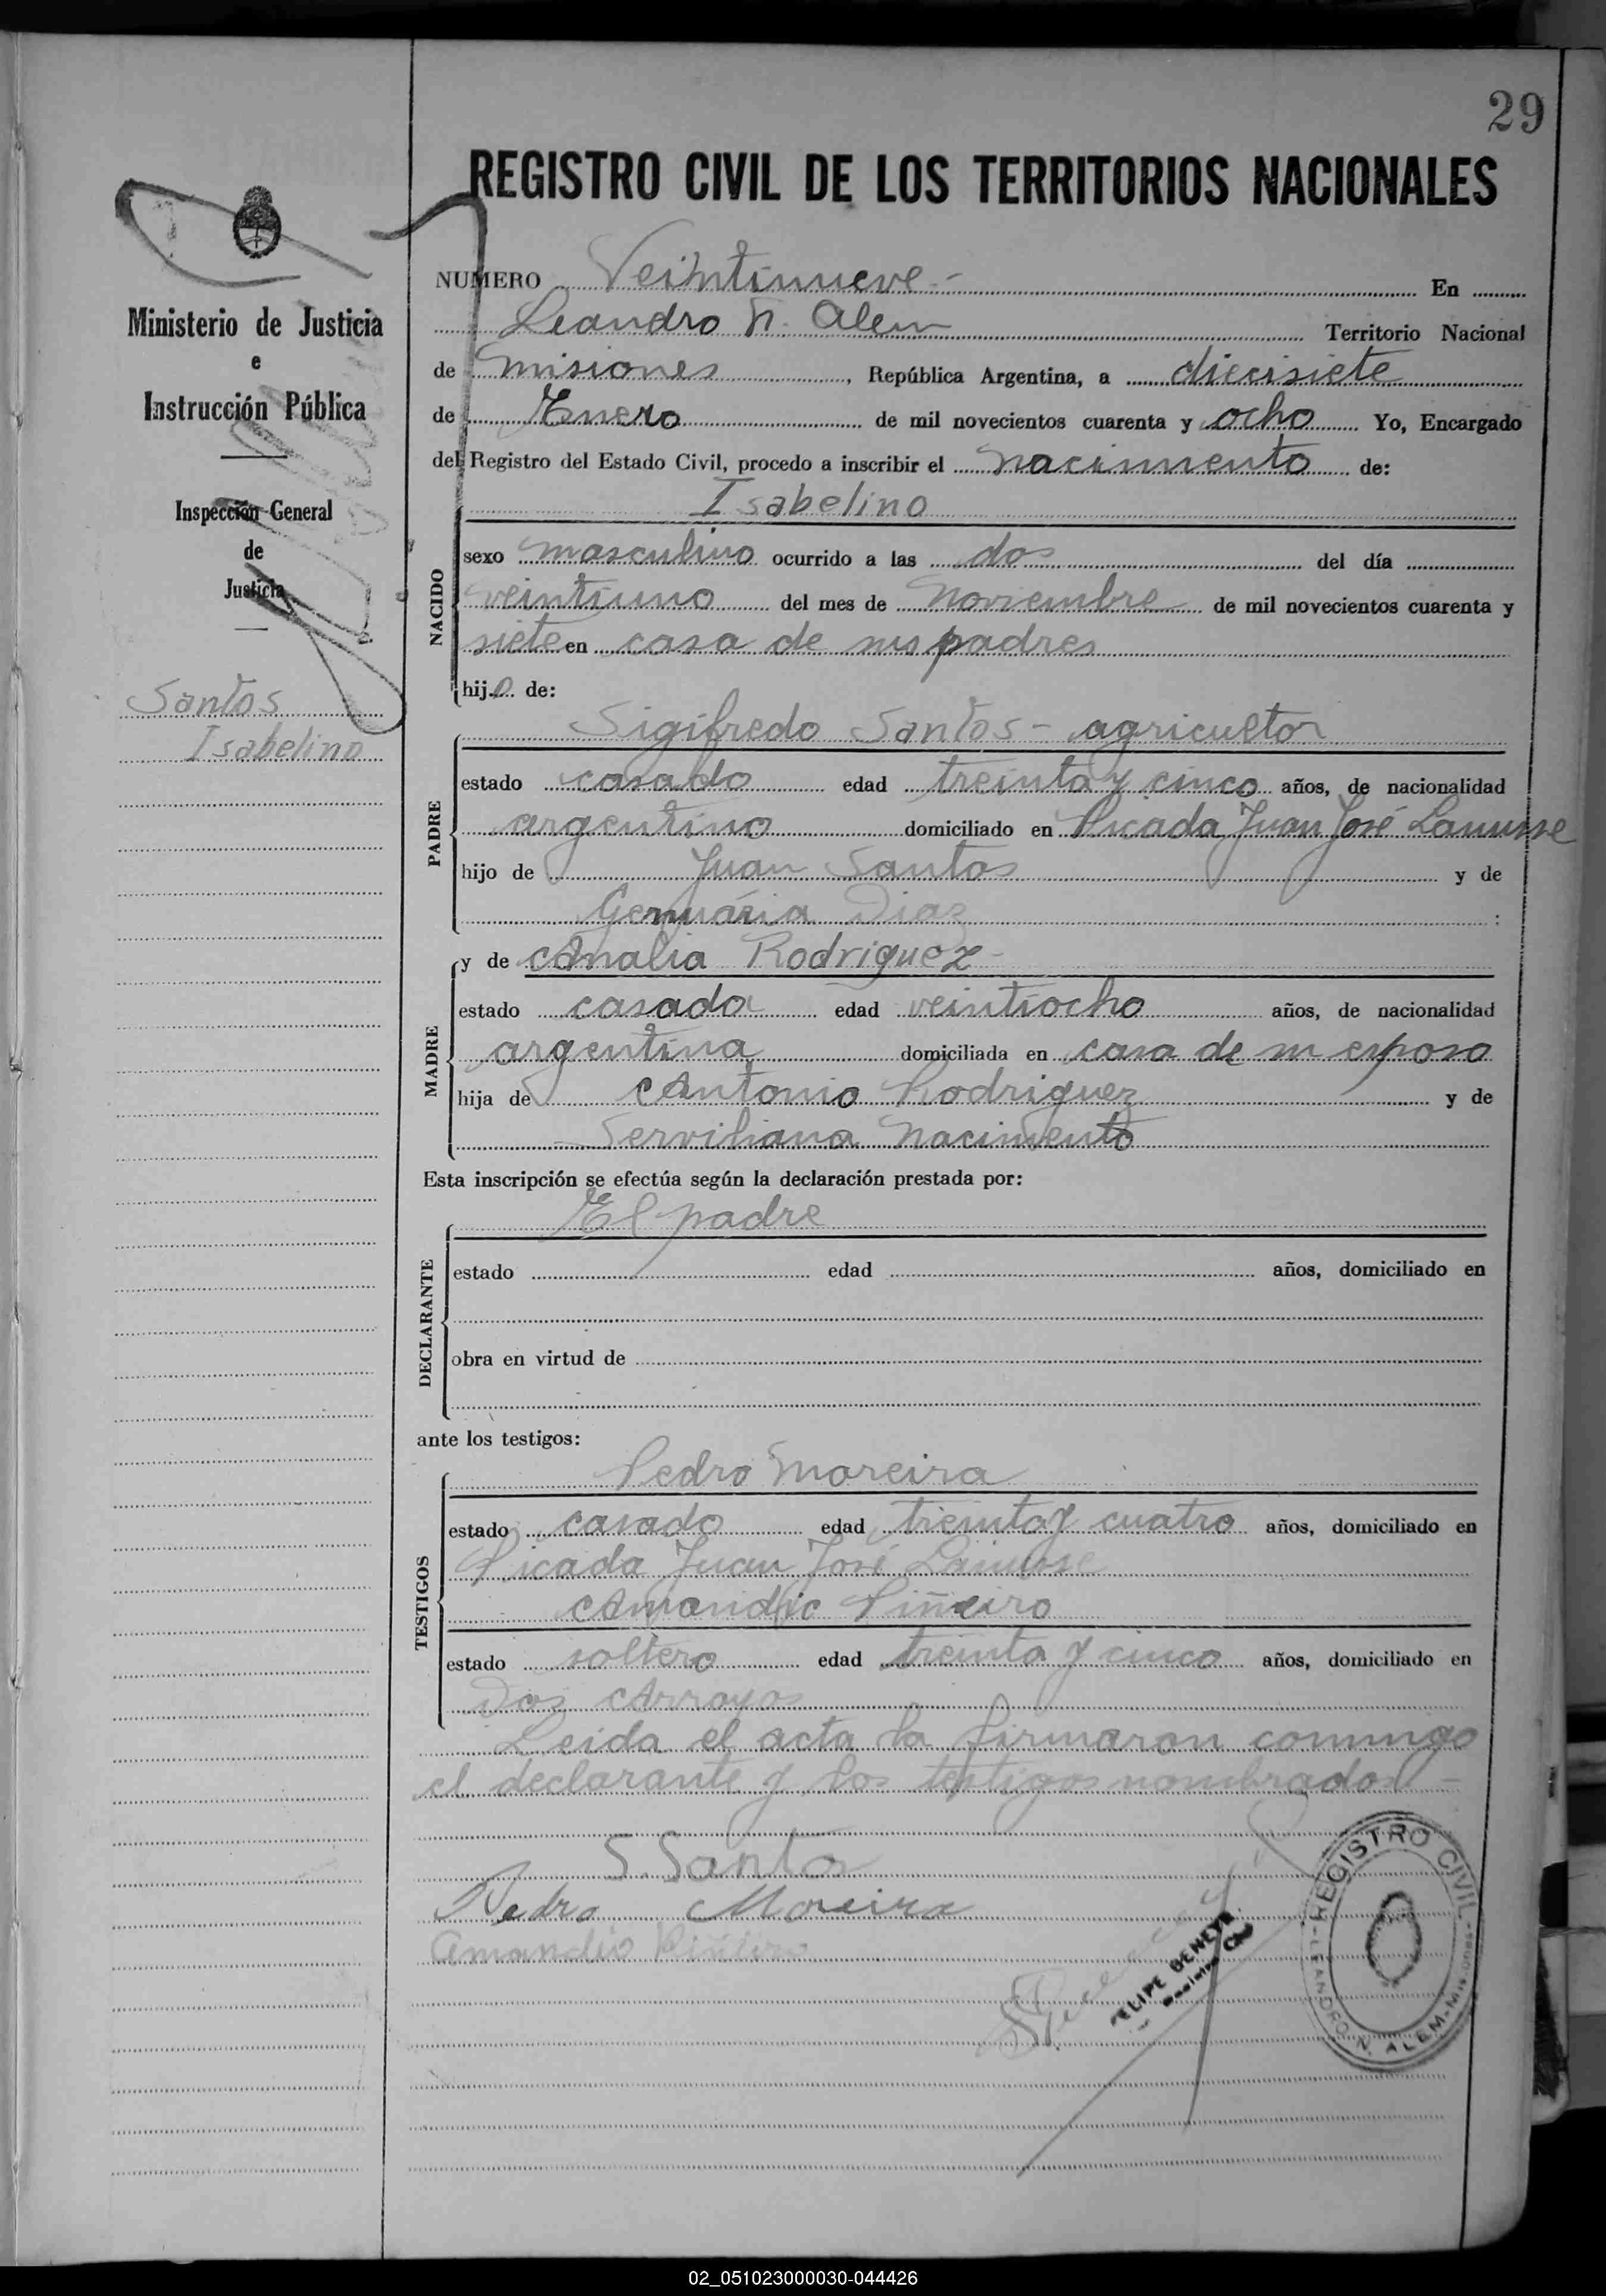 29
REGISTRO CIVIL DE LOS TERRITORIOS NACIONALES
Ministerio de Justicia
e
Instrucción Pública
Inspección General
de
Justicia
Santos
Isabelino
NUMERO Veintinueve - En
Leandro N. Alem Territorio Nacional
de Misiones, República Argentina, a diecisiete
de Enero de mil novecientos cuarenta y ocho Yo, Encargado
del Registro del Estado Civil, procedo a inscribir el nacimiento de:
Isabelino
NACIDO
sexo masculino ocurrido a las dos del día
veintiuno del mes de Noviembre de mil novecientos cuarenta y
siete en casa de sus padres
hijo de:
Sigifredo Santos - agricultor
PADRE
estado casado edad treinta y cinco años, de nacionalidad
argentino domiciliado en Picada Juan José Lanusse
hijo de Juan Santos y de
Diaz
y de Analia Rodriguez -
MADRE
estado casada edad veintiocho años, de nacionalidad
argentina domiciliada en casa de su esposo
hija de Antonio Rodriguez y de
Serviliana Nacimento
Esta inscripción se efectúa según la declaración prestada por:
El padre
DECLARANTE
estado edad años, domiciliado en
obra en virtud de
ante los testigos:
Pedro Moreira
TESTIGOS
estado casado edad treinta y cuatro años, domiciliado en
Picada Juan José Lanusse
Amandio Piñeiro
estado soltero edad treinta y cinco años, domiciliado en
Dos Arroyos
Leida el acta la firmaron conmigo
el declarante y los testigos nombrados -
S. Santos
Pedro Moreira
Amandio Piñeiro
REGISTRO CIVIL
LEANDRO N. ALEM - Misiones
02_051023000030-044426